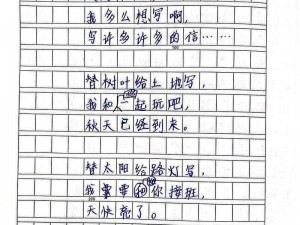 我多么想写啊，
写许多许多的信……
100
替树叶给土地写，
我和一起玩吧，
秋天已经到来。
替太阳给路灯写，
我要和你接班，
200
天快亮了。